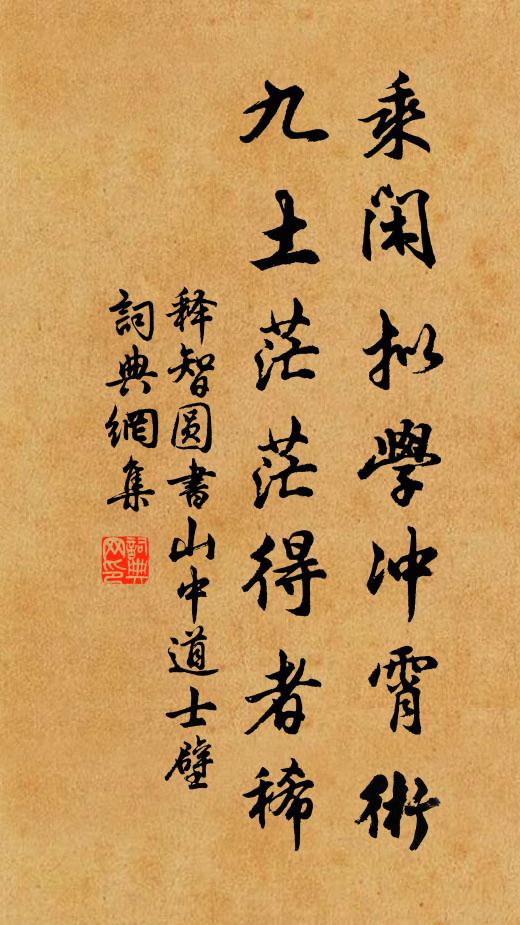 乘闲拟學冲霄術
九土茫茫得者稀
释智圆書山中道士壁
詞典網集
詞典网印